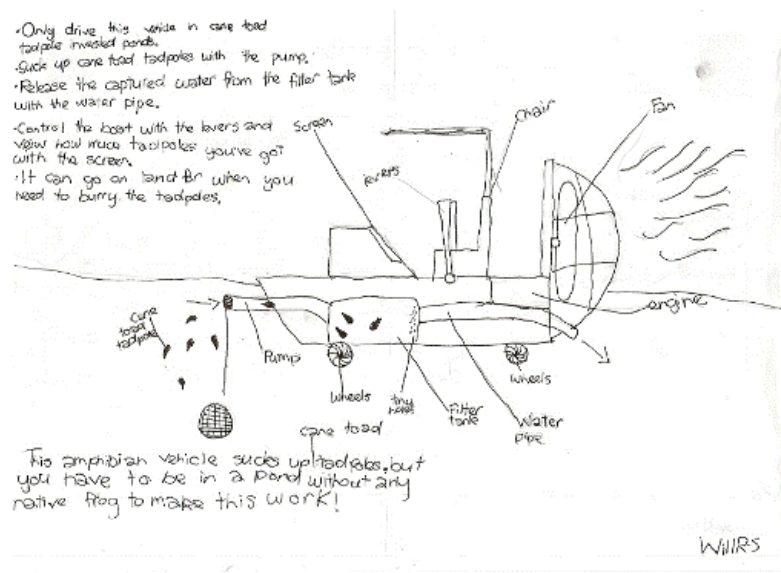 ·Only drive this vehicle in cane toad
tadpole invested ponds.
·Suck up cane toad tadpoles with the pump.
·Release the captured water from the filter tank
with the water pipe.
·Control the boat with the levers and
view how much tadpoles you've got
with the screen.
·It can go on land for when you
need to burry the tadpoles.
Screen
levers
Chair
Fan
engine
Cane
toad
tadpole
Pump
wheels
tiny
holes
Filter
tank
Water
pipe
wheels
cane toad
This amphibian vehicle sucks up tadpoles, but
you have to be in a pond without any
native frog to make this work!
Will R-S